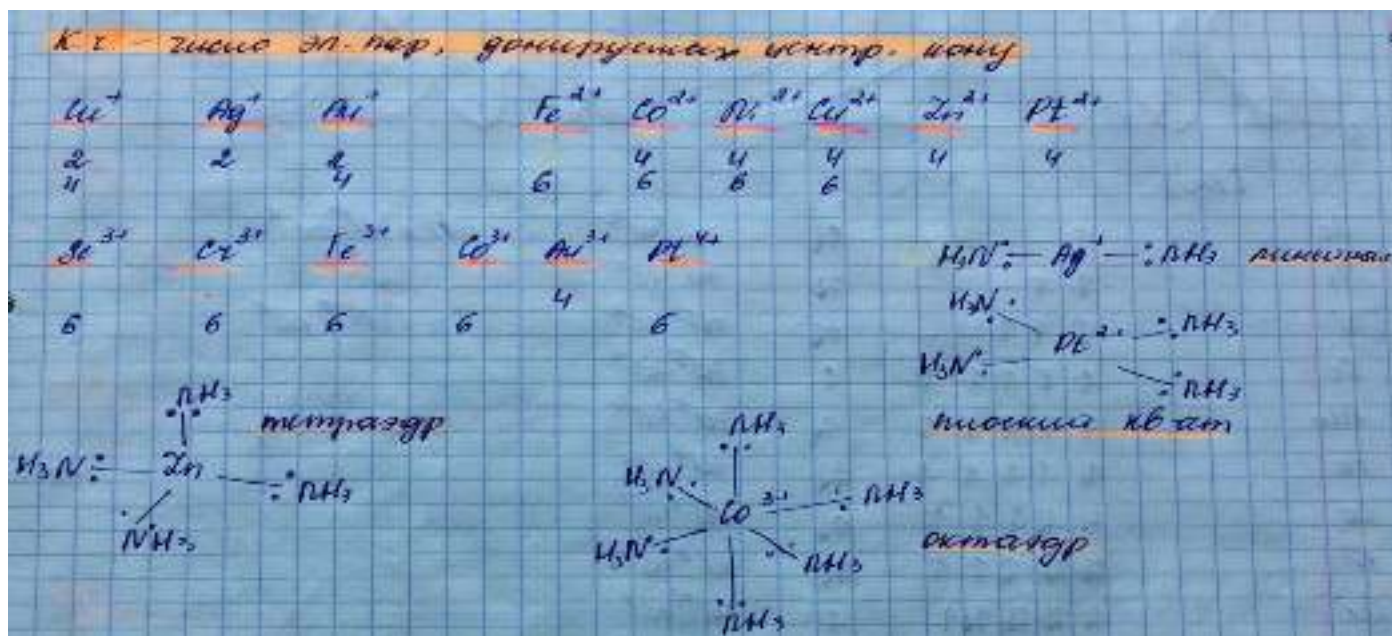 КЧ - число эл. пар, донируемых центр. иону
Cu⁺ Ag⁺ Au⁺ Fe²⁺ Co²⁺ Ni²⁺ Cu²⁺ Zn²⁺ Pt²⁺
2 2 2 4 4 4 4 4
4 4 6 6 6 6
Sc³⁺ Cr³⁺ Fe³⁺ Co³⁺ Au³⁺ Pt⁴⁺
4
6 6 6 6 6
H₃N: — Ag⁺ — :NH₃ линейная
H₃N: :NH₃
Pt²⁺
H₃N: :NH₃
плоский кв-ат
NH₃
тетраэдр
H₃N: Zn :NH₃
NH₃
NH₃
H₃N: :NH₃
Co³⁺
H₃N: :NH₃
октаэдр
NH₃